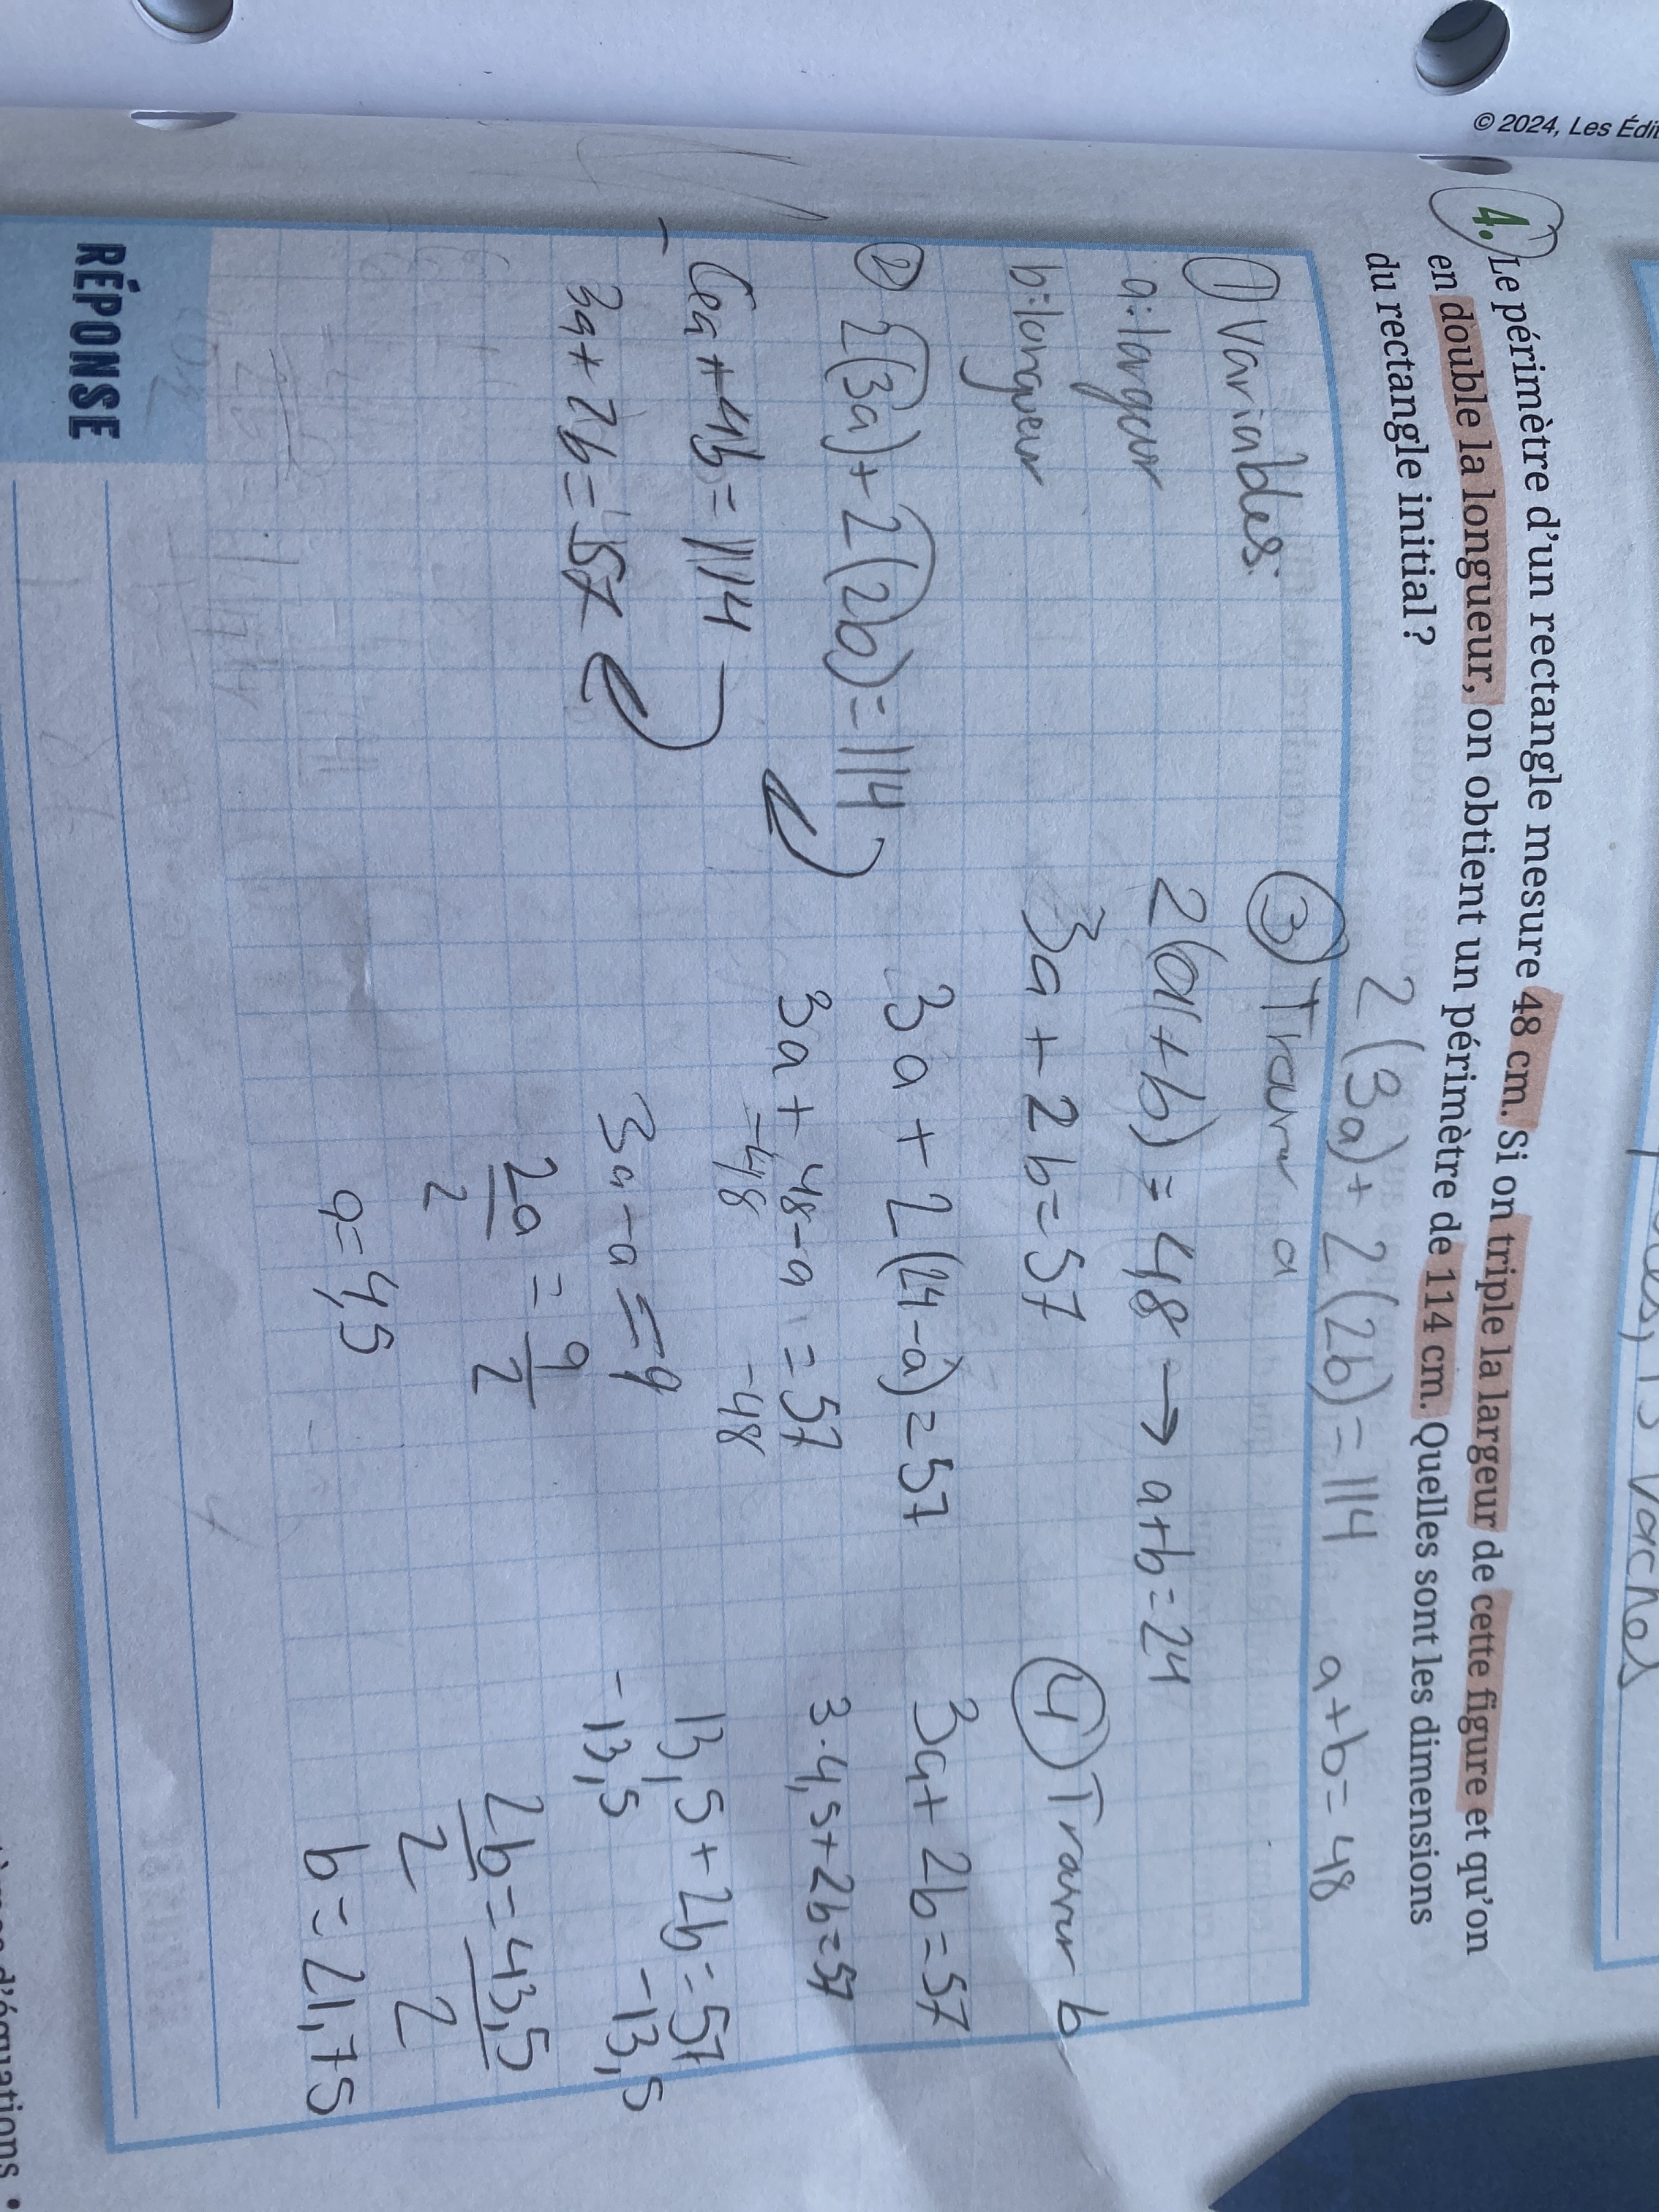 © 2024, Les Édit
vaches
4. Le périmètre d'un rectangle mesure 48 cm. Si on triple la largeur de cette figure et qu'on
en double la longueur, on obtient un périmètre de 114 cm. Quelles sont les dimensions
du rectangle initial?
2(3a)+2(2b)=114 a+b=48
① Variables:
a: largeur
b: longueur
② 2(3a)+2(2b)=114
6a+4b=114
3a+2b=57
③ Trouver a
2(a+b)=48 → a+b=24
3a+2b=57
3a+2(24-a)=57
3a+48-a=57
-48 -48
3a-a=9
2a = 9
2 2
a=4,5
④ Trouver b
3a+2b=57
3·4,5+2b=57
13,5+2b=57
-13,5 -13,5
2b=43,5
2 2
b=21,75
RÉPONSE
d'équations •